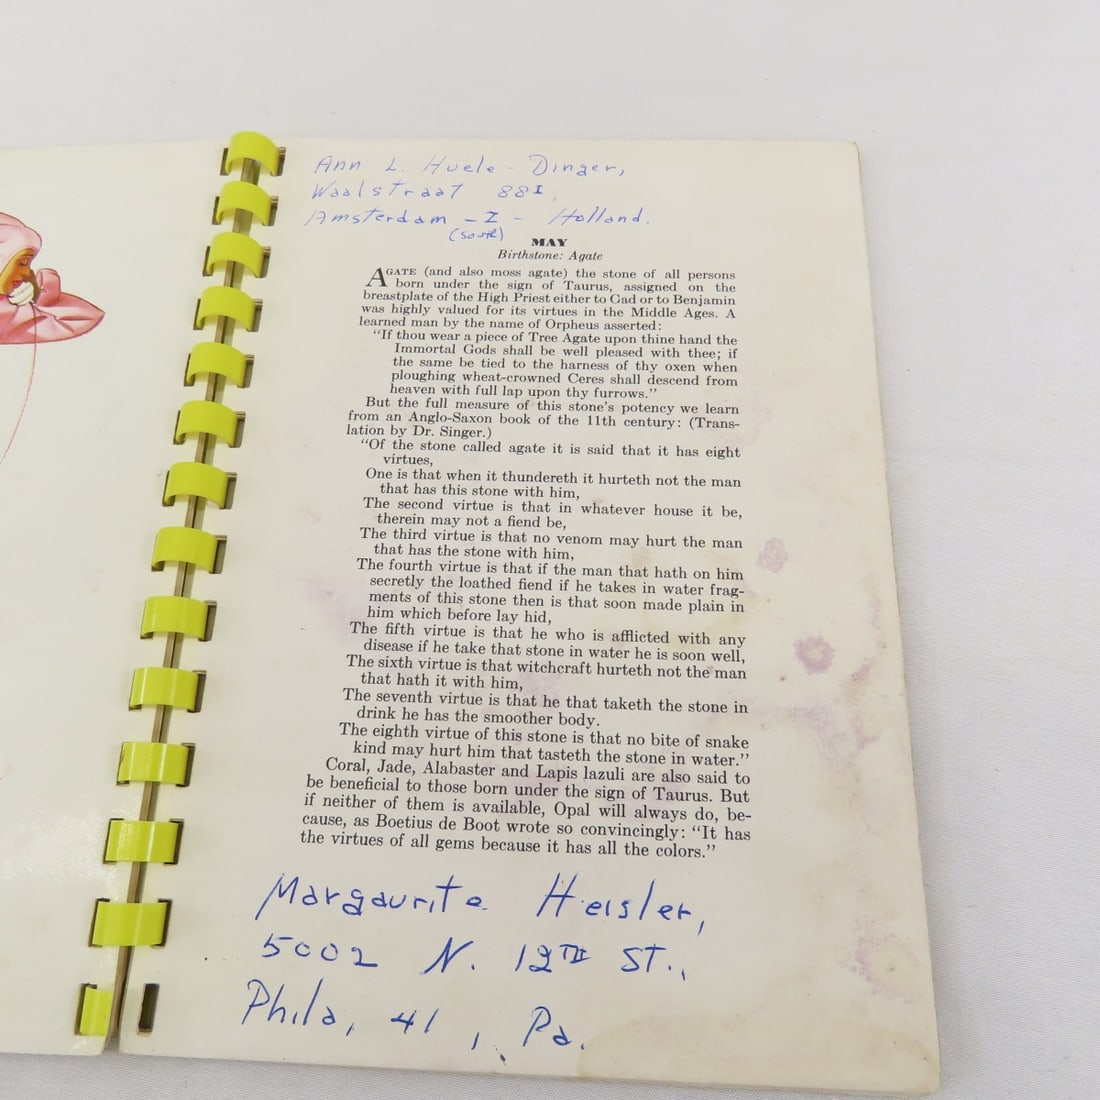 Ann L. Huele - Dinger,
Waalstraat 88I,
Amsterdam - Z - Holland.
(South)
MAY
Birthstone: Agate
AGATE (and also moss agate) the stone of all persons
born under the sign of Taurus, assigned on the
breastplate of the High Priest either to Gad or to Benjamin
was highly valued for its virtues in the Middle Ages. A
learned man by the name of Orpheus asserted:
“If thou wear a piece of Tree Agate upon thine hand the
Immortal Gods shall be well pleased with thee; if
the same be tied to the harness of thy oxen when
ploughing wheat-crowned Ceres shall descend from
heaven with full lap upon thy furrows.”
But the full measure of this stone’s potency we learn
from an Anglo-Saxon book of the 11th century: (Trans-
lation by Dr. Singer.)
“Of the stone called agate it is said that it has eight
virtues,
One is that when it thundereth it hurteth not the man
that has this stone with him,
The second virtue is that in whatever house it be,
therein may not a fiend be,
The third virtue is that no venom may hurt the man
that has the stone with him,
The fourth virtue is that if the man that hath on him
secretly the loathed fiend if he takes in water frag-
ments of this stone then is that soon made plain in
him which before lay hid,
The fifth virtue is that he who is afflicted with any
disease if he take that stone in water he is soon well,
The sixth virtue is that witchcraft hurteth not the man
that hath it with him,
The seventh virtue is that he that taketh the stone in
drink he has the smoother body.
The eighth virtue of this stone is that no bite of snake
kind may hurt him that tasteth the stone in water.”
Coral, Jade, Alabaster and Lapis lazuli are also said to
be beneficial to those born under the sign of Taurus. But
if neither of them is available, Opal will always do, be-
cause, as Boetius de Boot wrote so convincingly: “It has
the virtues of all gems because it has all the colors.”
Margaurite Heisler,
5002 N. 12TH ST.,
Phila, 41, Pa.